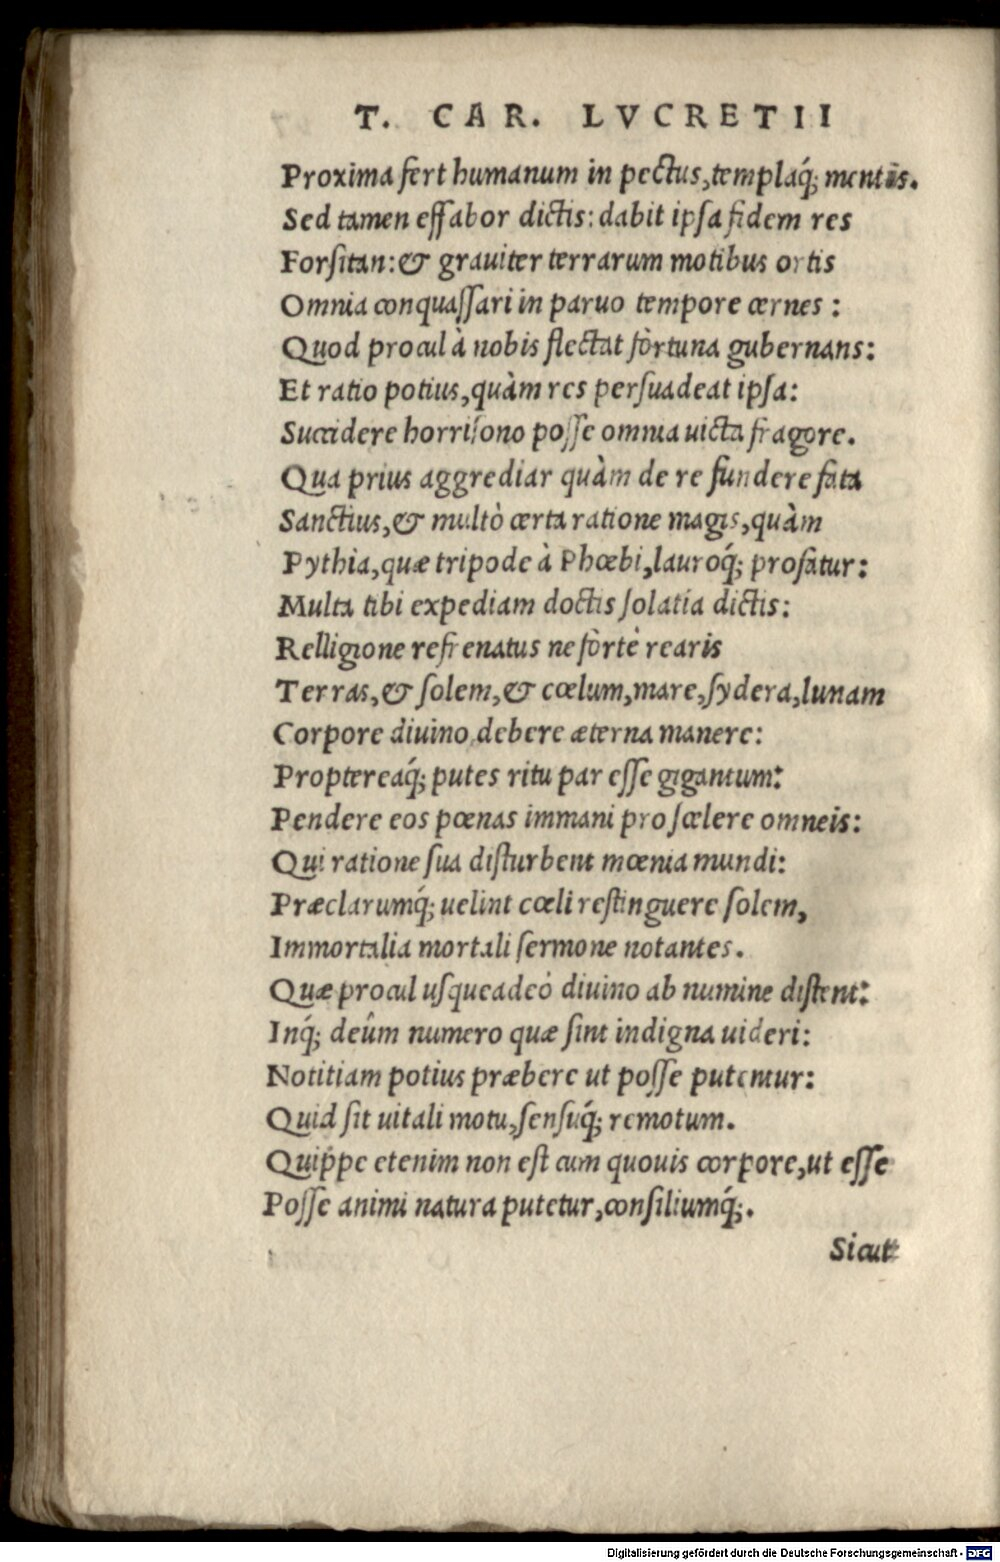 T. CAR. LVCRETII
Proxima fert humanum in pectus, templaq́; mentis.
Sed tamen effabor dictis: dabit ipsa fidem res
Forsitan: & grauiter terrarum motibus ortis
Omnia conquassari in paruo tempore cernes:
Quod procul à nobis flectat fòrtuna gubernans:
Et ratio potius, quàm res persuadeat ipsa:
Succidere horrisono posse omnia uicta fragore.
Qua prius aggrediar quàm de re fundere fata
Sanctius, & multò certa ratione magis, quàm
Pythia, quæ tripode à Phœbi, lauroq́; profatur:
Multa tibi expediam doctis solatia dictis:
Relligione refrenatus ne fòrtè rearis
Terras, & solem, & cœlum, mare, sydera, lunam
Corpore diuino debere æterna manere:
Proptereaq́; putes ritu par esse gigantum:
Pendere eos pœnas immani pro scelere omneis:
Qui ratione sua disturbent mœnia mundi:
Præclarumq́; uelint cœli restinguere solem,
Immortalia mortali sermone notantes.
Quæ procul usqueadeò diuino ab numine distent:
Inq́; deûm numero quæ sint indigna uideri:
Notitiam potius præbere ut posse putentur:
Quid sit uitali motu, sensuq́; remotum.
Quippe etenim non est cum quouis corpore, ut esse
Posse animi natura putetur, consiliumq́;.
Sicut
Digitalisierung gefördert durch die Deutsche Forschungsgemeinschaft - DFG